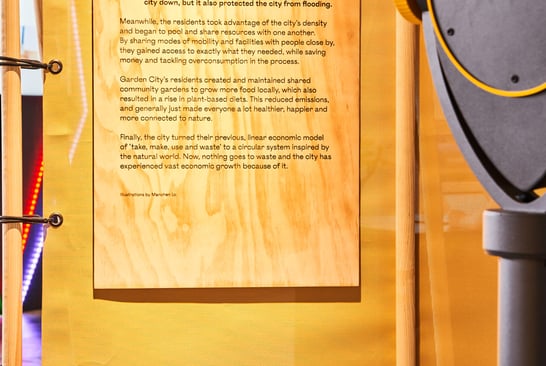 city down, but it also protected the city from flooding.
Meanwhile, the residents took advantage of the city's density
and began to pool and share resources with one another.
By sharing modes of mobility and facilities with people close by,
they gained access to exactly what they needed, while saving
money and tackling overconsumption in the process.
Garden City's residents created and maintained shared
community gardens to grow more food locally, which also
resulted in a rise in plant-based diets. This reduced emissions,
and generally just made everyone a lot healthier, happier and
more connected to nature.
Finally, the city turned their previous, linear economic model
of 'take, make, use and waste' to a circular system inspired by
the natural world. Now, nothing goes to waste and the city has
experienced vast economic growth because of it.
Illustrations by